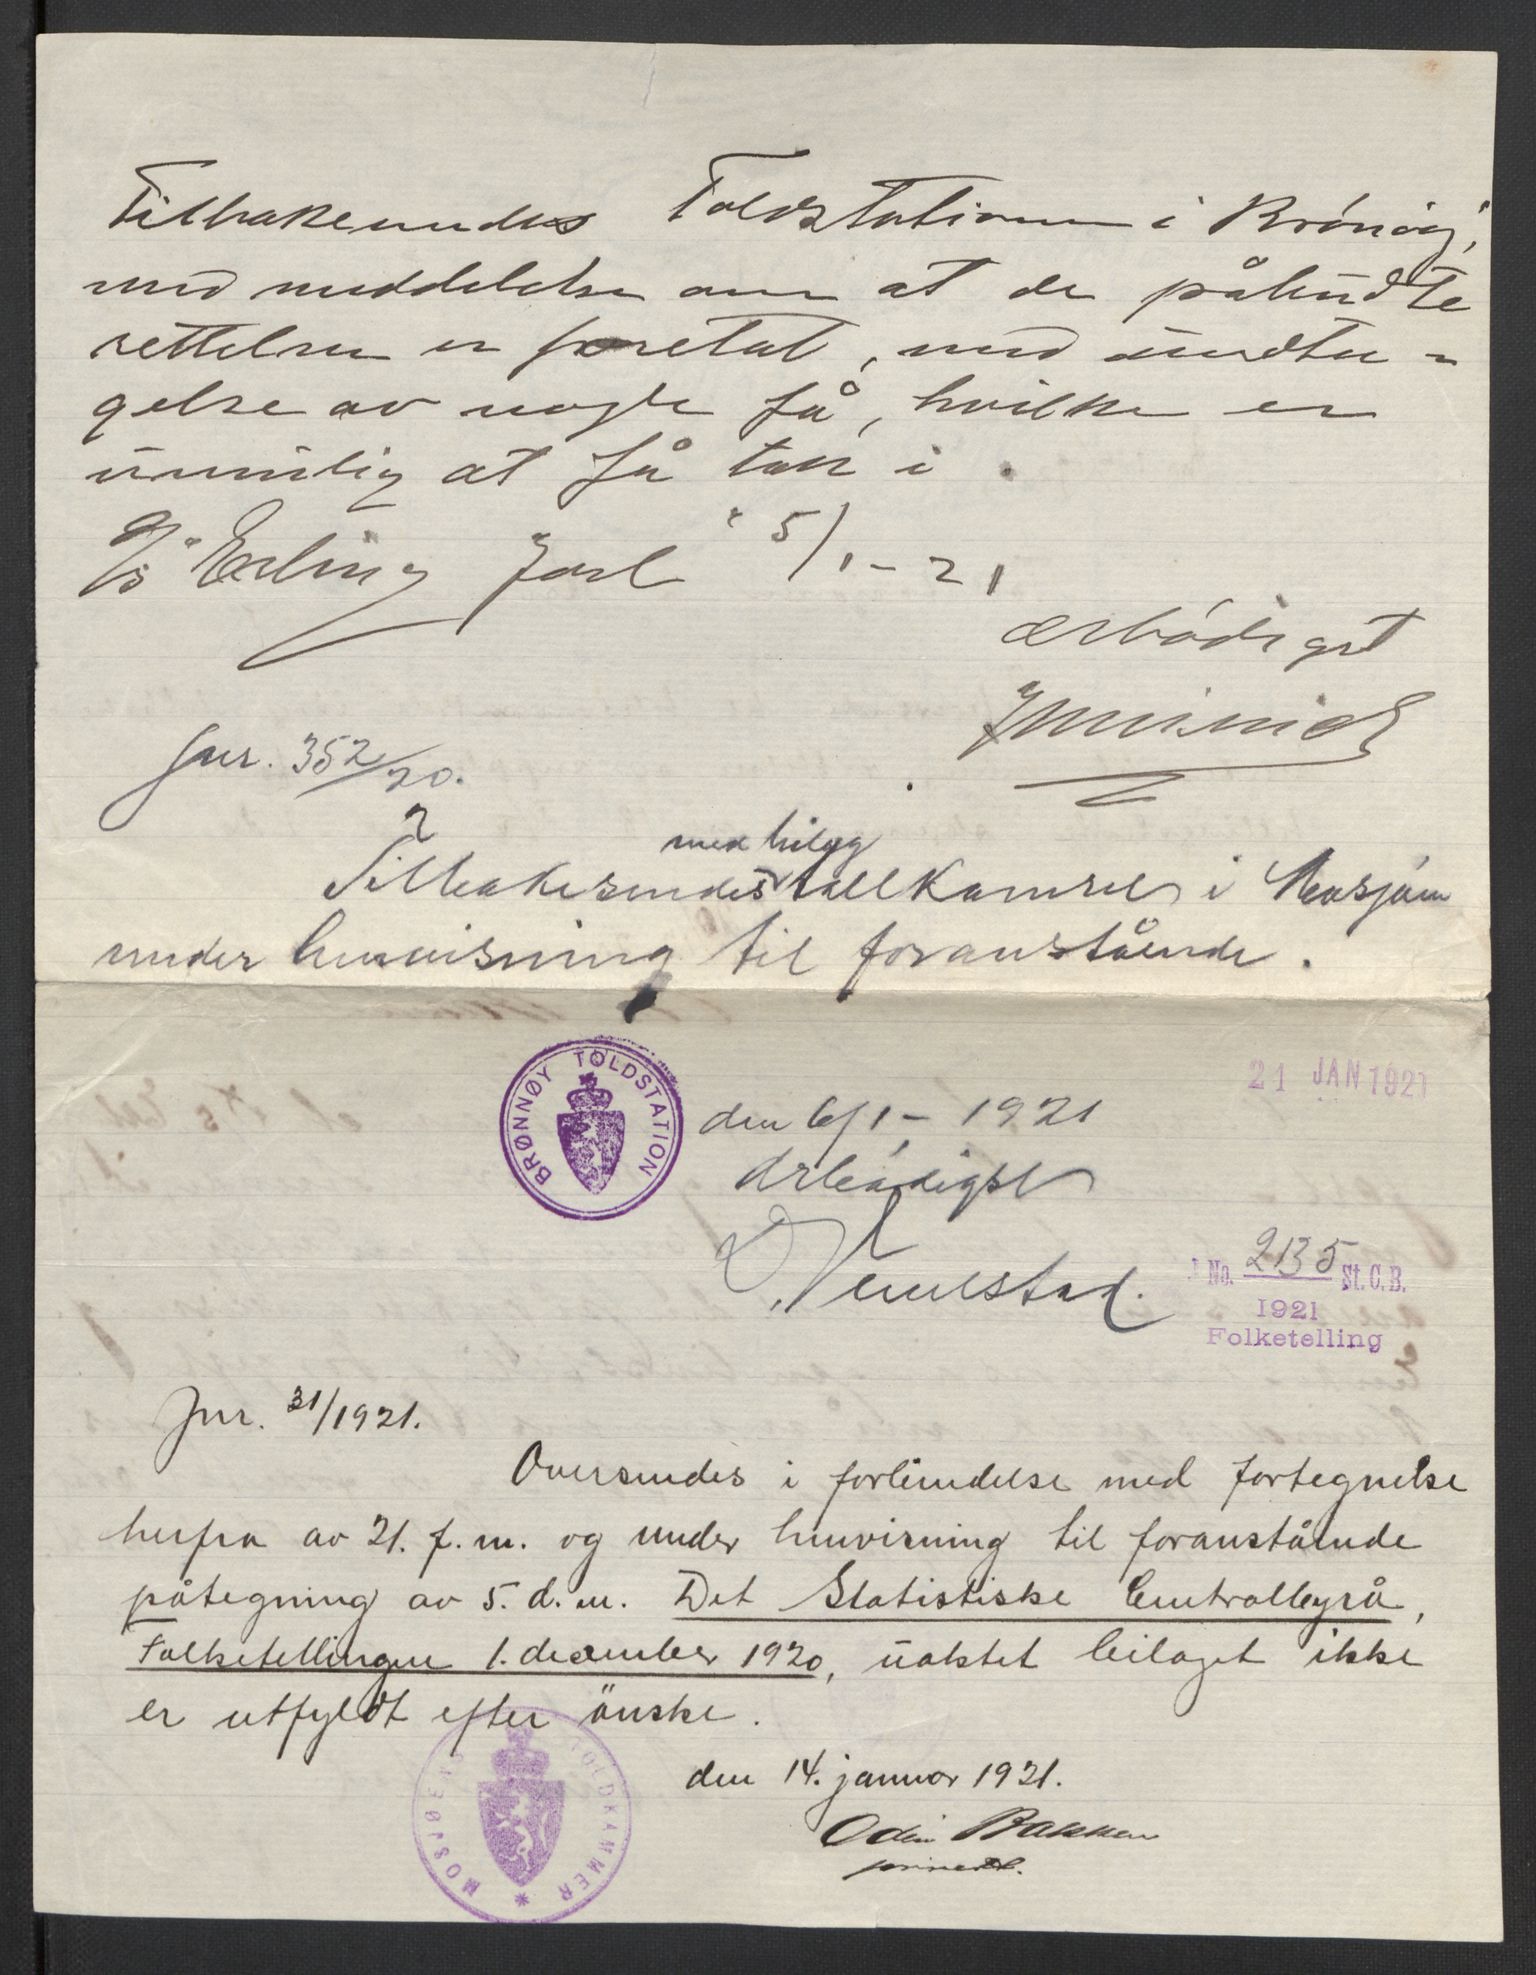 Tilbakesendes Toldstationen i Brönöy,
med meddelelse om at de påbudte
rettelser er foretat, med undta-
gelse av nogle få, hvilke er
umulig at få tak i.
D/S "Erling Jarl" 5/1-21
ærbödigst
Jnr. 352/20.
med bilag
Tilbakesendes tollkamret i Mosjöen
under henvisning til foranstående.
BRØNNØY TOLDSTATION
21 JAN 1921
den 6/1- 1921
Ærbödigst
J No. 2135 St. C. B.
1921
Folketelling
Jnr. 31/1921.
Oversendes i forbindelse med fortegnelse
herfra av 21. f. m. og under henvisning til foranstående
påtegning av 5. d. m. Det Statistiske Centralbyrå,
Folketellingen 1. december 1920, uaktet bilaget ikke
er utfyldt efter önske.
MOSJØENS TOLDKAMMER
den 14. januar 1921.
Odin Bakken